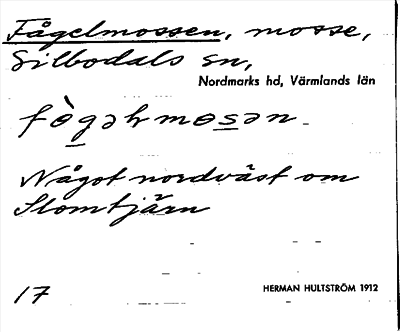 Fågelmossen, mosse,
Silbodals sn,
Nordmarks hd, Värmlands län
fògəhmosən
Något nordväst om
Slomtjärn
17 HERMAN HULTSTRÖM 1912